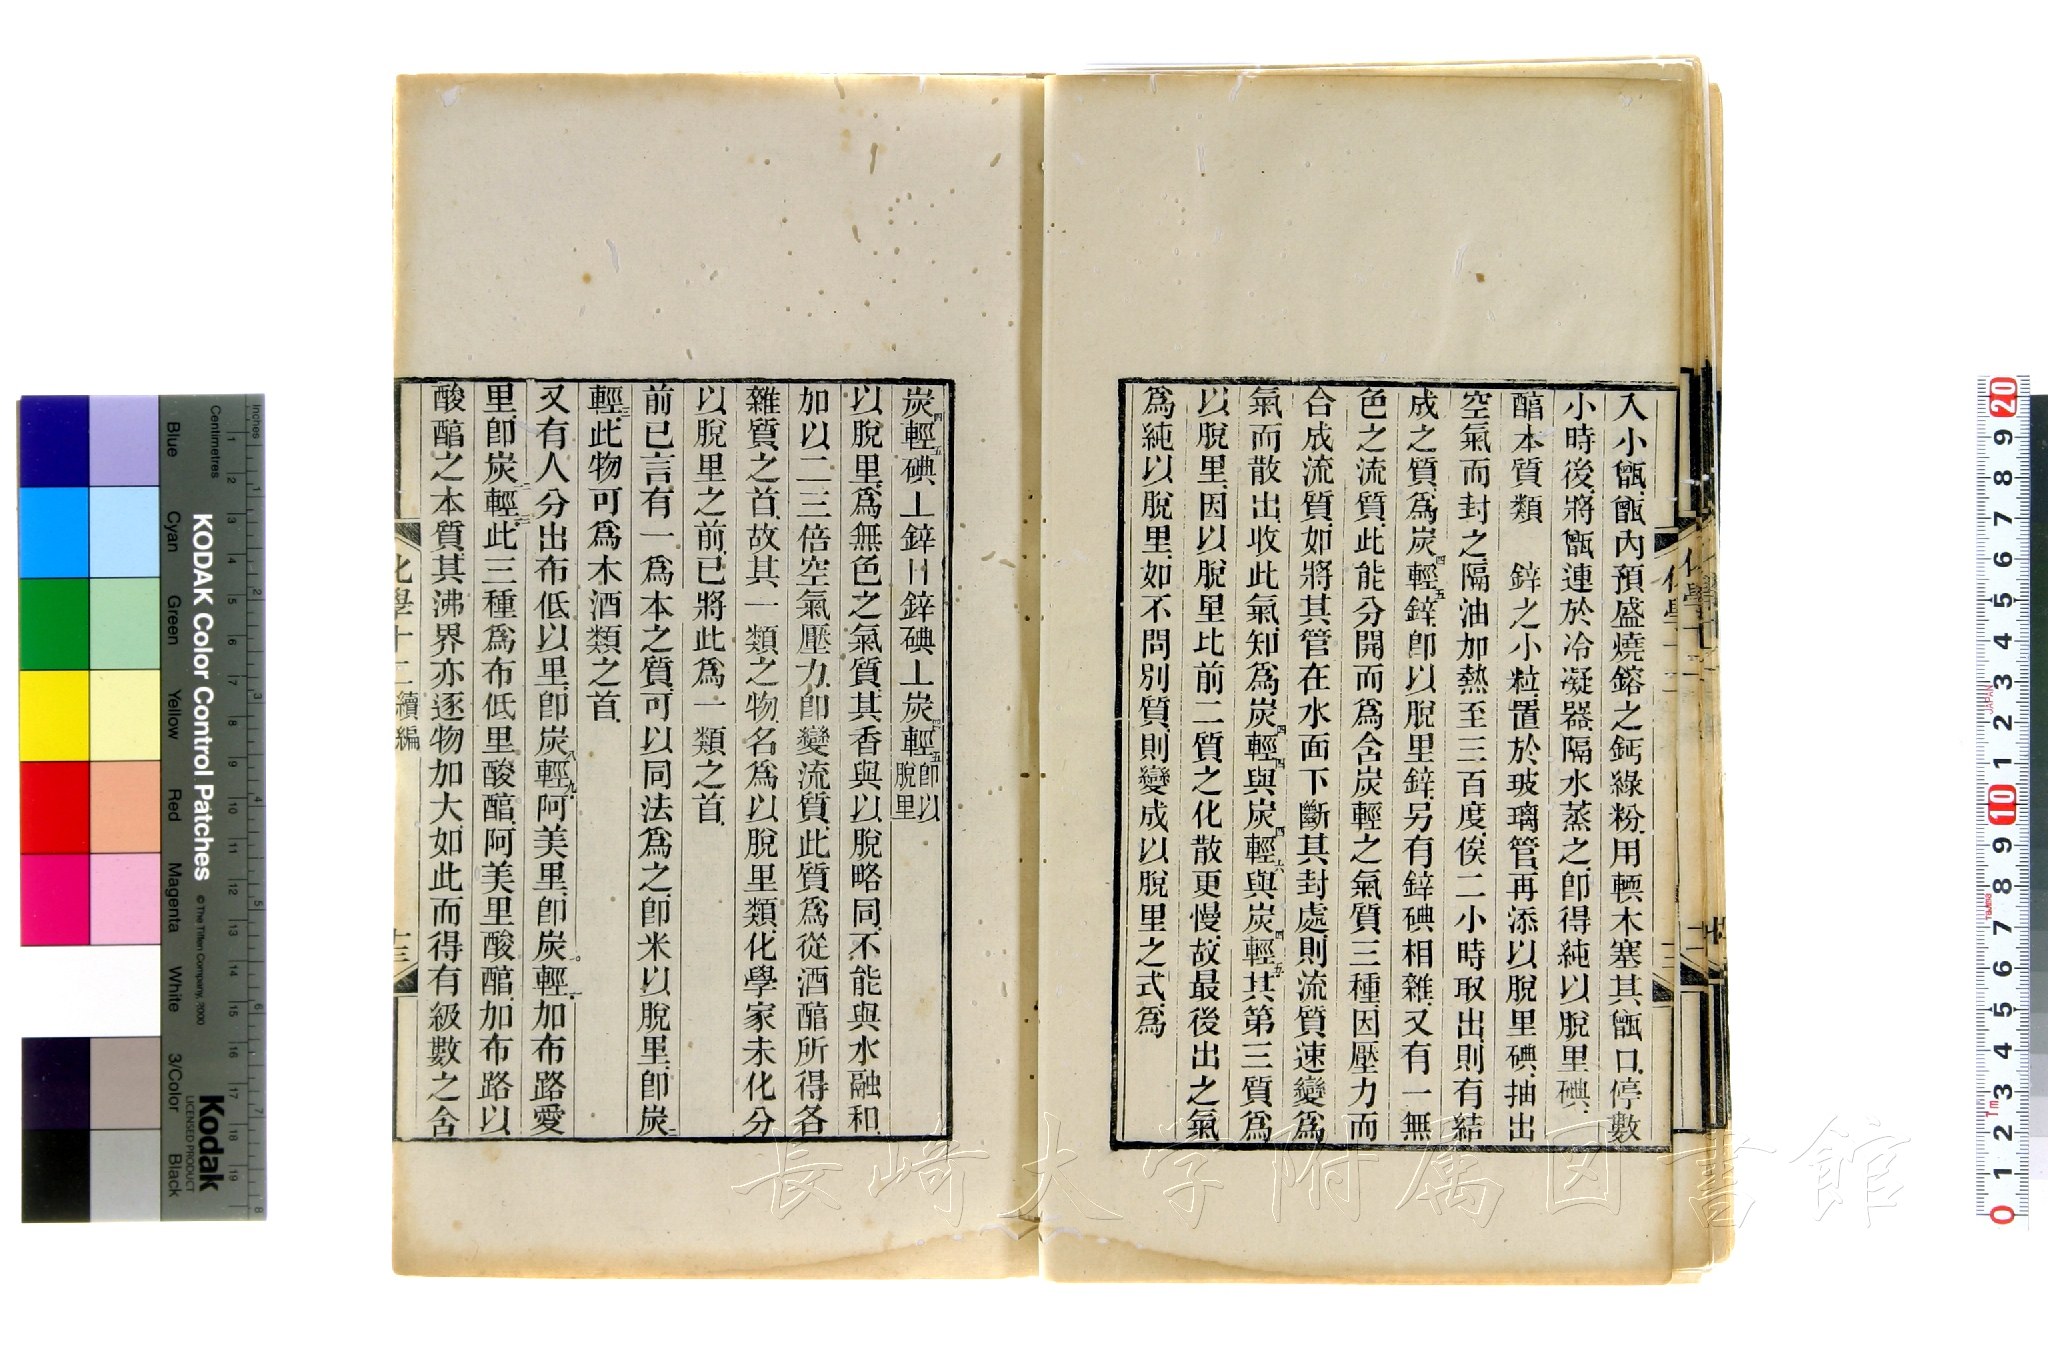 入小甑甑內預盛燒鎔之鈣綠粉用輭木塞其甑口停數
小時後將甑連於冷凝器隔水蒸之卽得純以脫里碘
醕本質類　鋅之小粒置於玻璃管再添以脫里碘抽出
空氣而封之隔油加熱至三百度俟二小時取出則有結
成之質爲炭四輕五鋅卽以脫里鋅另有鋅碘相雜又有一無
色之流質此能分開而爲含炭輕之氣質三種因壓力而
合成流質如將其管在水面下斷其封處則流質速變爲
氣而散出收此氣知爲炭四輕四與炭四輕六與炭四輕五其第三質爲
以脫里因以脫里比前二質之化散更慢故最後出之氣
爲純以脫里如不問別質則變成以脫里之式爲
炭四輕五碘⊥鋅〢鋅碘⊥炭四輕五卽以脫里
以脫里爲無色之氣質其香與以脫略同不能與水融和
加以二三倍空氣壓力卽變流質此質爲從酒醕所得各
雜質之首故其一類之物名爲以脫里類化學家未化分
以脫里之前已將此爲一類之首
前已言有一爲本之質可以同法爲之卽米以脫里卽炭二
輕三此物可爲木酒類之首
又有人分出布低以里卽炭八輕九阿美里卽炭一〇輕一一加布路愛
里卽炭一二輕一三此三種爲布低里酸醕阿美里酸醕加布路以
酸醕之本質其沸界亦逐物加大如此而得有級數之含
化學十二續編
十三
化學十二
長崎大学附属図書館
KODAK Color Control Patches
© The Tiffen Company, 2000
Kodak
LICENSED PRODUCT
Inches
Centimetres
Blue
Cyan
Green
Yellow
Red
Magenta
White
3/Color
Black